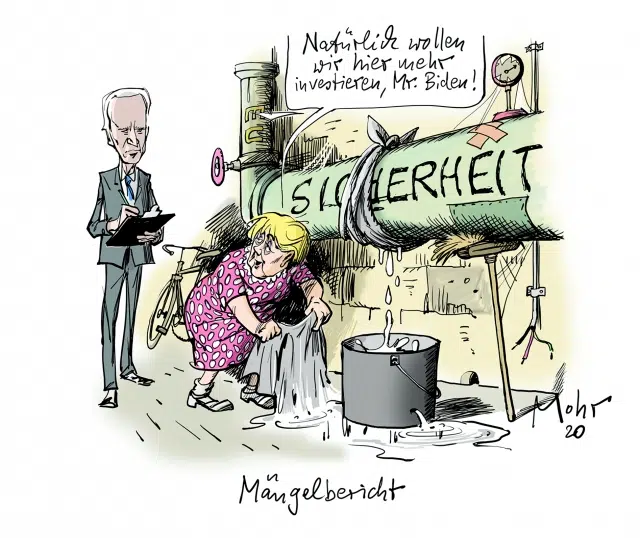 Natürlich wollen
wir hier mehr
investieren, Mr. Biden!
EU
SICHERHEIT
Mohr
20
Mängelbericht